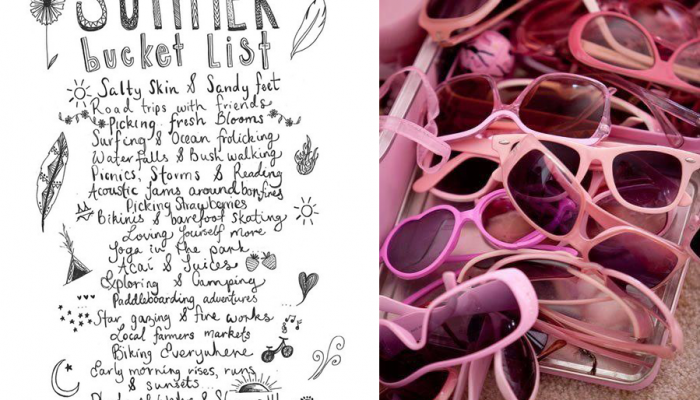 SUMMER
bucket List
Salty Skin & Sandy feet
Road trips with friends
Picking fresh Blooms
Surfing & Ocean frolicking
Waterfalls & Bush walking
Picnics, Storms & Reading
Acoustic jams around bonfires
Picking Strawberries
Bikinis & barefoot skating
Loving yourself more
Yoga in the park
Acai & Juices
Exploring & Camping
Paddleboarding adventures
Star gazing & fire works
Local farmers markets
Biking Everywhere
Early morning rises, runs
& sunsets...